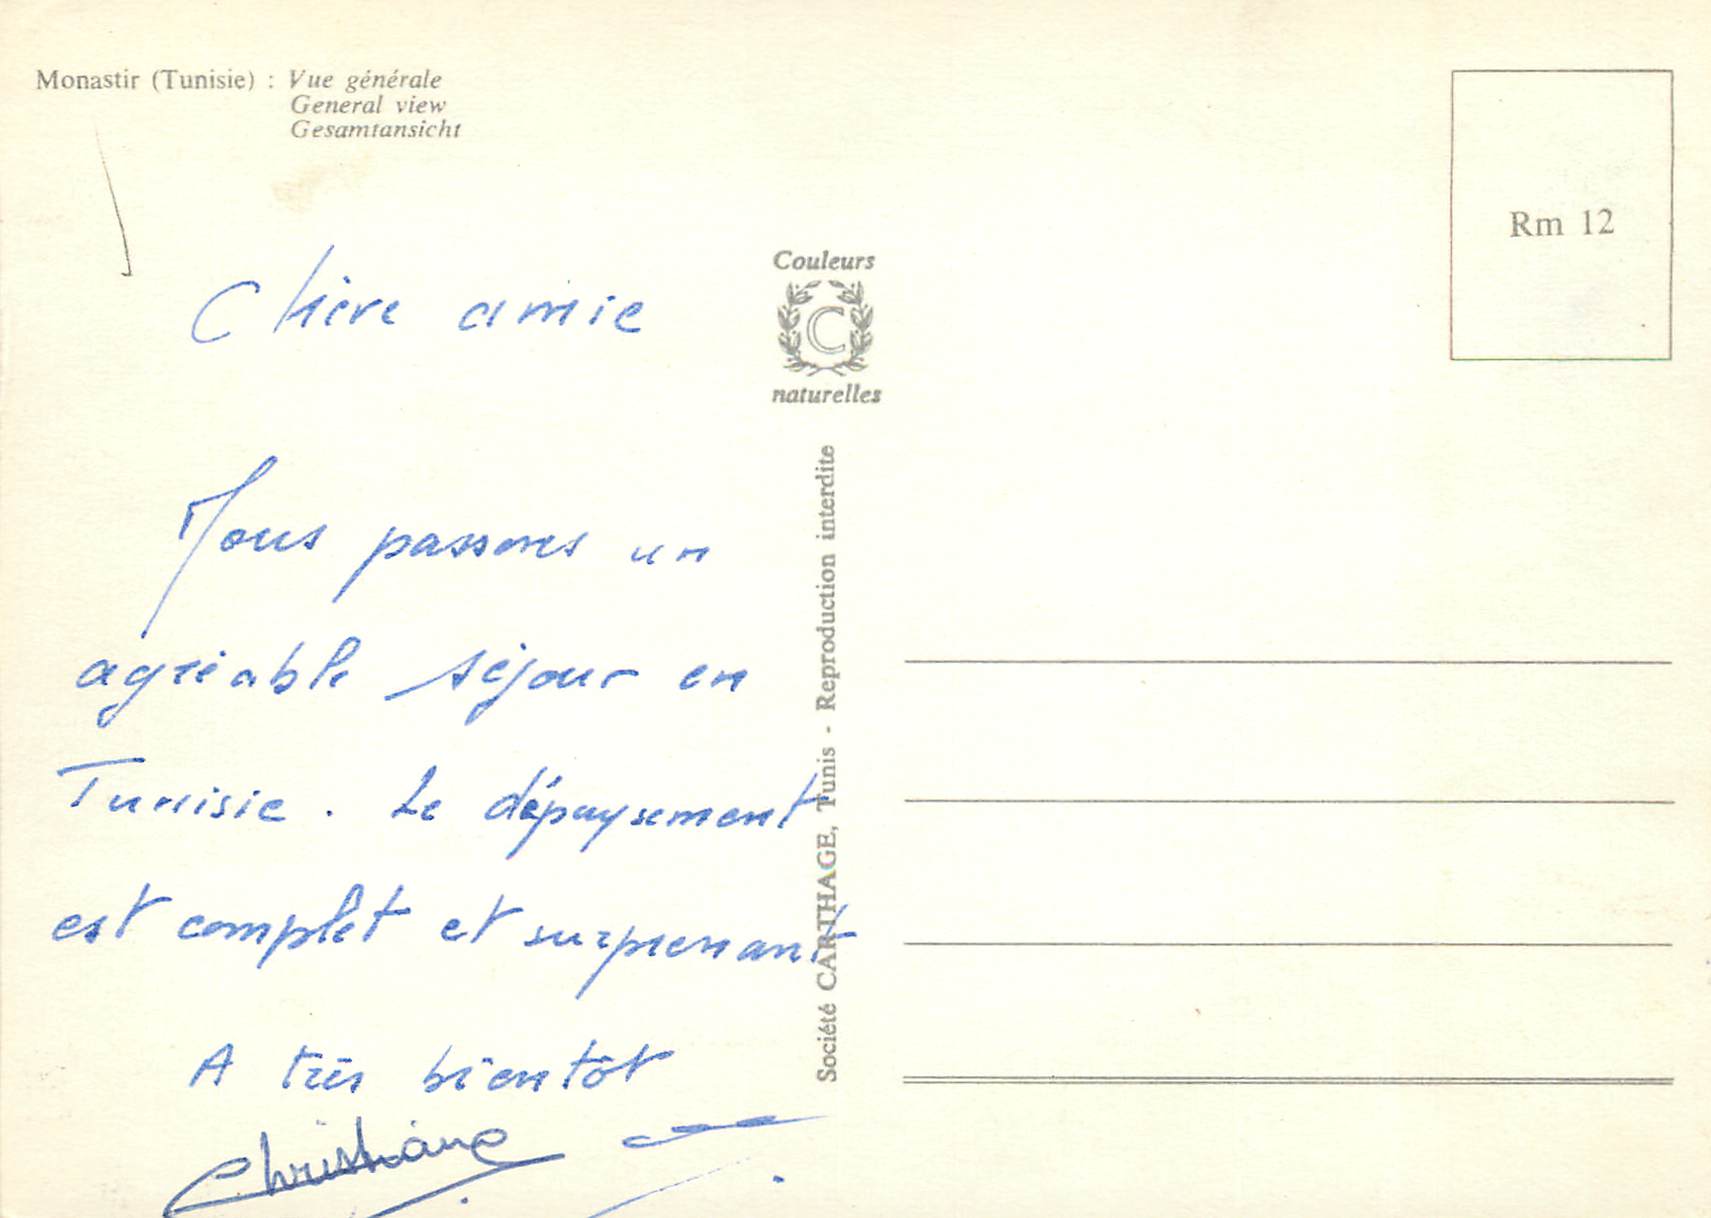 Monastir (Tunisie) : Vue générale
General view
Gesamtansicht
Rm 12
Couleurs
C
naturelles
Société CARTHAGE, Tunis - Reproduction interdite
Chère amie
Nous passons un
agréable séjour en
Tunisie. Le dépaysement
est complet et surprenant
A très bientôt
Christiane